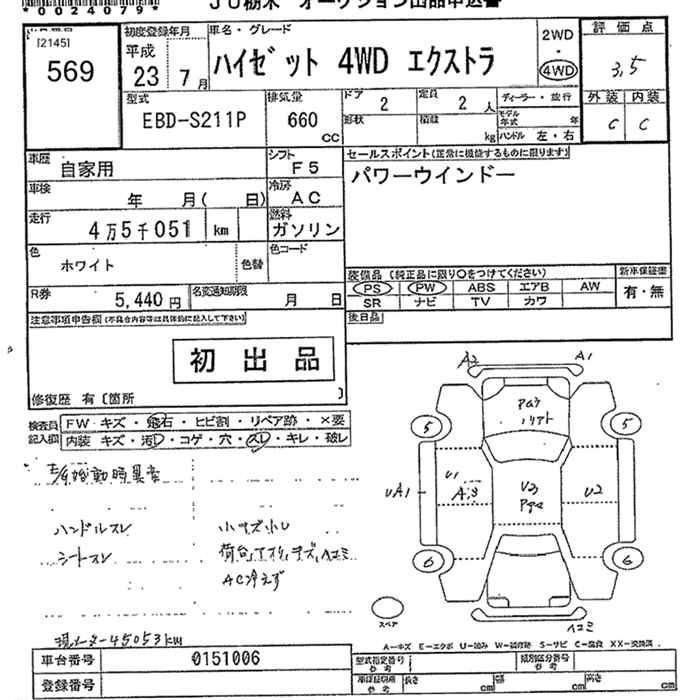 *0024079*
JU栃木 オークション出品申込書
[21451]
569
初度登録年月
平成
23 7月
車名・グレード
ハイゼット 4WD エクストラ
2WD
・
4WD
評価点
3,5
外装 内装
C C
型式
EBD-S211P
排気量
660
CC
ドア 2
定員 2 人
形状
積載 kg
ディーラー・並行
モデル年式 年
ハンドル 左・右
車歴 自家用
シフト F5
セールスポイント(正常に機能するものに限ります)
パワーウインドー
車検 年 月( 日)
冷房 AC
走行 4万5千051 km
燃料 ガソリン
色 ホワイト 色替
色コード
装備品 (純正品に限り〇をつけてください)
新車保証書
PS PW ABS エアB AW
SR ナビ TV カワ
有・無
R券 5,440 円
名変通知期限 月 日
後日品
注意事項申告欄(不具合内容等は具体的に記入して下さい)
初出品
修復歴 有〔箇所 〕
検査員記入欄
FW キズ・飛石・ヒビ割・リペア跡・×要
内装 キズ・汚レ・コゲ・穴・スレ・キレ・破レ
始動時異音
ハンドルスレ
シートスレ
小キズ小U
AC冷えず
現メーター45053km
A2 A1
5 5
UA1
U1
U2
6 6
スペア
ヘコミ
A-キズ E-エクボ U-凹み W-補修跡 S-サビ C-腐食 XX-交換済
車台番号 0151006
登録番号
型式指定番号 参考
類別区分番号 参考
車検証記載 参考 長さ cm 幅 cm 高さ cm